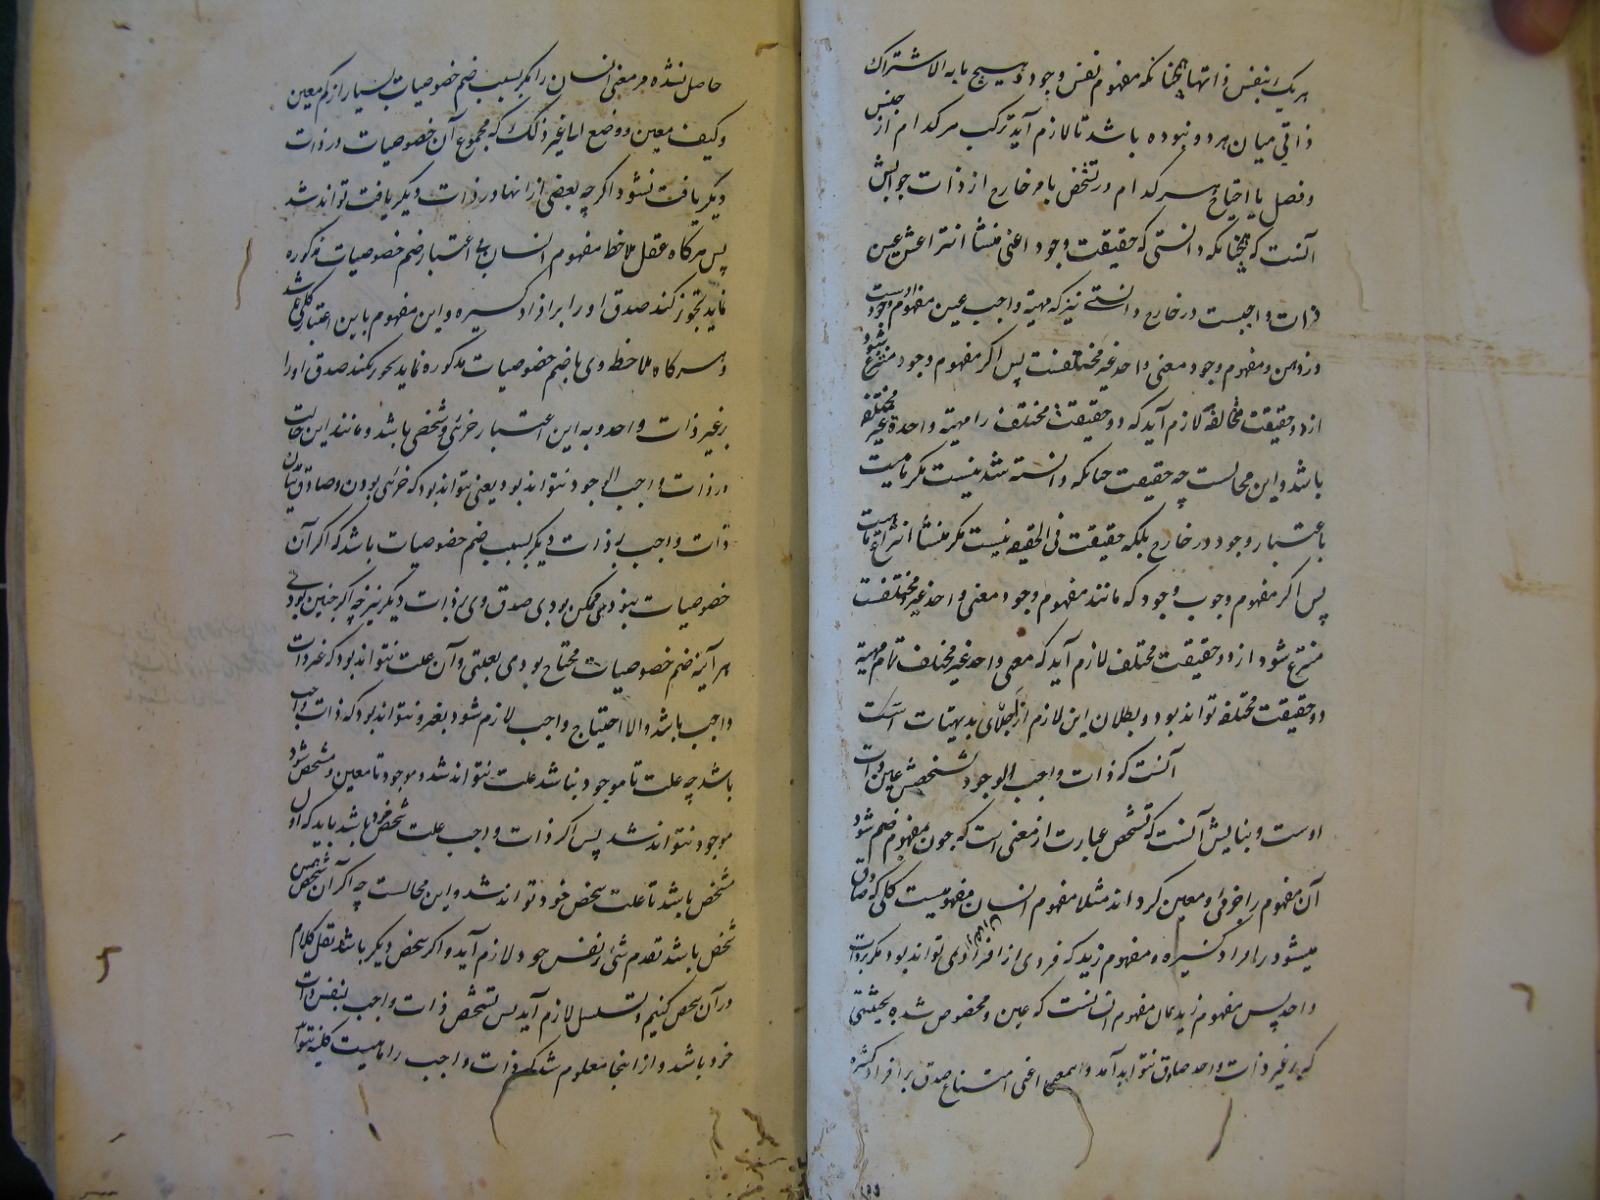 هر یک بنفس ذاتها همچنانکه مفهوم نفس وجود و هیچ ما به الاشتراک
ذاتی میان هر دو نبوده باشد تا لازم آید ترکب هر کدام از جنس
و فصل یا احتیاج هر کدام در تشخص بامر خارج از ذات جوابش
آنست که همچنانکه دانستی که حقیقت وجود اعنی منشأ انتزاعش عین
ذات واجبست در خارج دانستی نیز که مهیة واجب بعین مفهوم وجود اوست
در ذهن و مفهوم وجود معنی واحد غیر مختلفست پس اگر مفهوم وجود منتزع شود
از دو حقیقت مخالفه لازم آید که دو حقیقت مختلف را مهیة واحدة غیر مختلفه
باشد و این محالست چه حقیقت چنانکه دانسته شد نیست مگر ماهیت
باعتبار وجود در خارج بلکه حقیقت فی الحقیقه نیست مگر منشأ انتزاع ماهیت
پس اگر مفهوم وجوب وجود که مانند مفهوم وجود معنی واحد غیر مختلفست
منتزع شود از دو حقیقت مختلف لازم آید که معنی واحد غیر مختلف تمام مهیة
دو حقیقت مختلفه تواند بود و بطلان این لازم از اجلای بدیهیات است
آنست که ذات واجب الوجود تشخصش عین ذات
اوست و بنایش آنست که تشخص عبارت از معنی است که چون بمفهوم ضم شود
آن مفهوم را جزئی و معین گرداند مثلا مفهوم انسان مفهومیست کلی که صادق
میشود بر افراد کثیره و مفهوم زید که فردی از افراد تواند بود مگر بر ذات
واحد پس مفهوم زید همان مفهوم انسانست که معین و مخصوص شده بحیثیتی
که بر غیر ذات واحد صادق نتواند آمد و این معنی اعنی امتناع صدق بر افراد کثیره
حاصل نشده مر معنی انسان را مگر بسبب ضم خصوصیات بسیار از کم معین
و کیف معین و وضع الی غیر ذلک که مجموع آن خصوصیات در ذات
دیگر یافت نشود اگر چه بعضی از آنها در ذات دیگر یافت تواند شد
پس هر گاه عقل ملاحظ مفهوم انسان بی اعتبار ضم خصوصیات مذکوره
نماید تجویز کند صدق او را بر افراد کثیره و این مفهوم باین اعتبار کلی باشد
و هر گاه ملاحظ وی با ضم خصوصیات مذکوره نماید تجویز نکند صدق او را
بر غیر ذات واحد و به این اعتبار جزئی و شخصی باشد و مانند این حالت
در ذات واجب الوجود نتواند بود یعنی نتواند بود که جزئی بودن و صادق نیامدن
ذات واجب بر ذات دیگر بسبب ضم خصوصیات باشد که اگر آن
خصوصیات نبودی ممکن بودی صدق وی بر ذات دیگر نیز چه اگر چنین بودی
هر آینه ضم خصوصیات محتاج بودی بعلتی و آن علت نتواند بود که غیر ذات
واجب باشد و الا احتیاج واجب لازم شود بغیر و نتواند بود که ذات واجب
باشد چه علت تا موجود نباشد علت نتواند شد و موجود تا معین و مشخص نشود
موجود نتواند شد پس اگر ذات واجب علت شخص خود باشد باید که اول
مشخص باشد تا علت تشخص خود تواند شد و این محالست چه اگر آن تشخص همین
تشخص باشد تقدم شئ بر نفس خود لازم آید و اگر تشخص دیگر باشد نقل کلام
در آن تشخص کنیم و تسلسل لازم آید پس تشخص ذات واجب بنفس ذات
خود باشد و از اینجا معلوم شد که ذات واجب را ماهیت کلیه نتواند